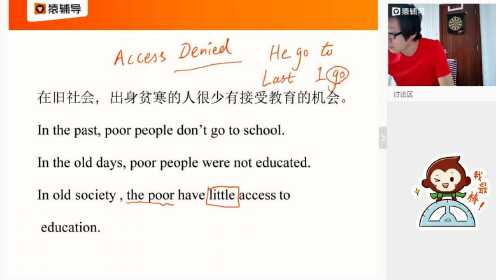 猿辅导
猿辅导
Access Denied He go to
Last I go
在旧社会，出身贫寒的人很少有接受教育的机会。
In the past, poor people don't go to school.
In the old days, poor people were not educated.
In old society , the poor have little access to
education.
讨论区
我最棒!